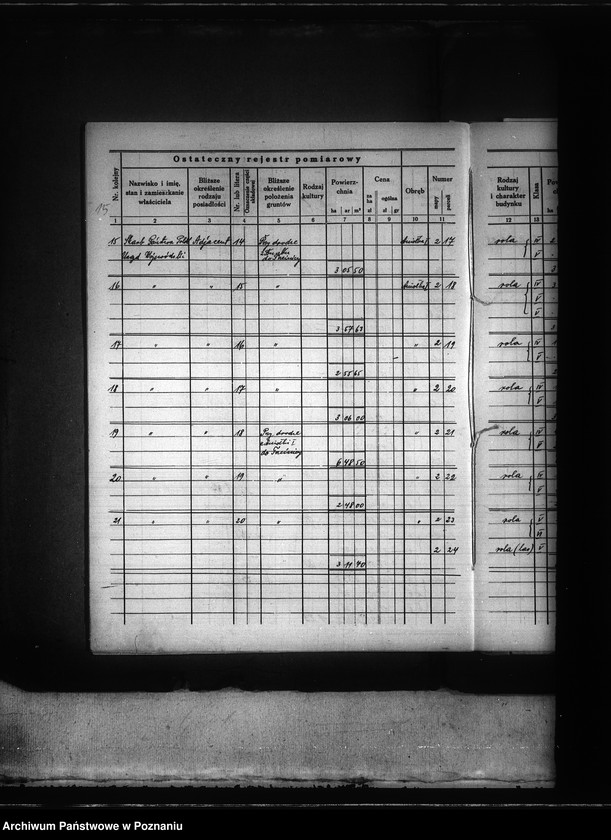 Ostateczny rejestr pomiarowy
Nr. kolejny
Nazwisko i imię, stan i zamieszkanie właściciela
Bliższe określenie rodzaju posiadłości
Nr. lub litera
Oznaczenie części składowej
Bliższe określenie położenia gruntów
Rodzaj kultury
Powierzchnia
ha ar m²
Cena
ogólna
zł gr
Obręb
Numer
mapy parceli
Rodzaj kultury i charakter budynku
Klasa
ha
1 2 3 4 5 6 7 8 9 10 11 12 13
15
15 Skarb Państwa Polsk Adjacent 14 Przy drodze 2 17 rola IV
Urząd Wojewódzki V
3 05 50
16 " " 15 " 2 18 rola IV
V
V
3 57 63
17 " " 16 " " 2 19 rola IV
V
2 55 65
18 " " 17 " " 2 20 rola IV
V
3 06 00
19 " " 18 Przy drodze " 2 21 rola IV
V
6 48 50
20 " " 19 " " 2 22 rola IV
V
2 48 00
21 " " 20 " " 2 23 rola V
VI
2 24 rola (las) V
3 11 40
Archiwum Państwowe w Poznaniu